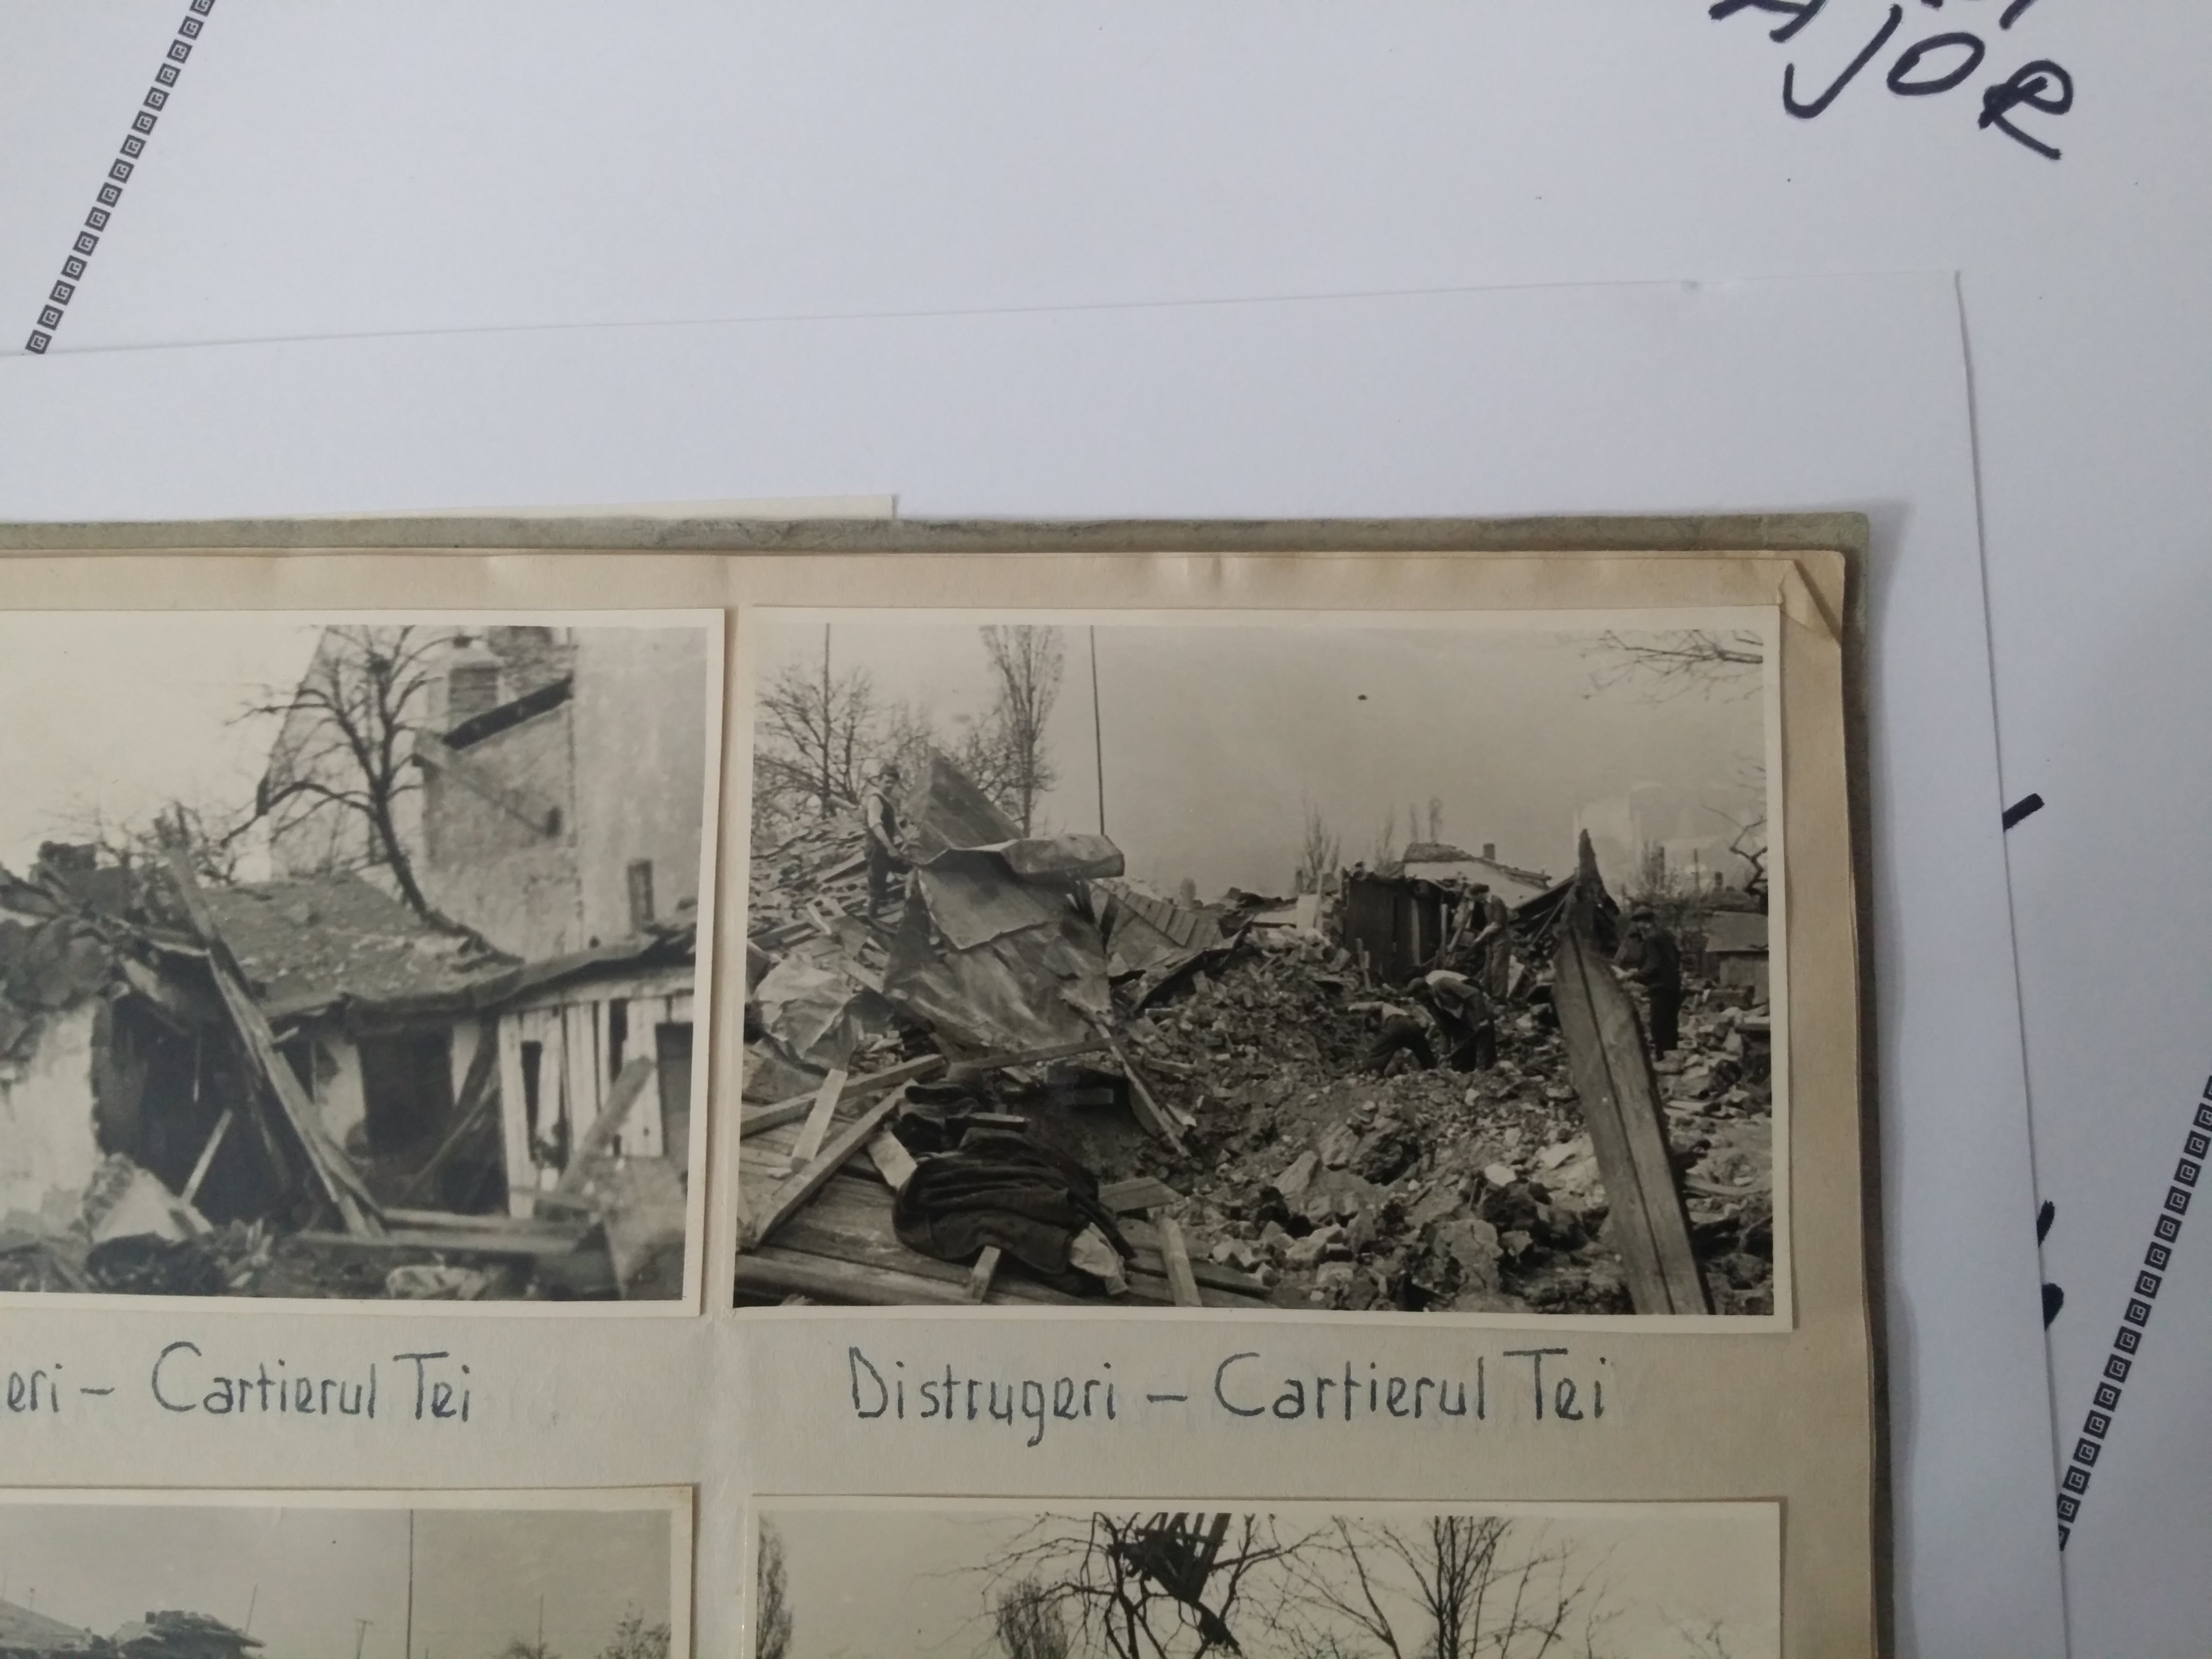 eri - Cartierul Tei
Distrugeri - Cartierul Tei